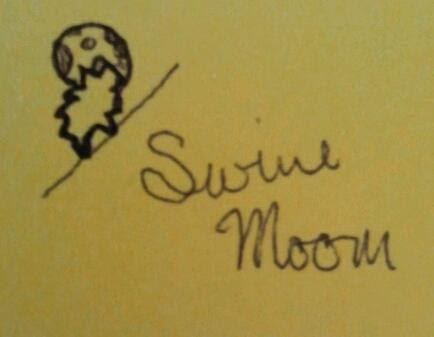 Swine
Moom